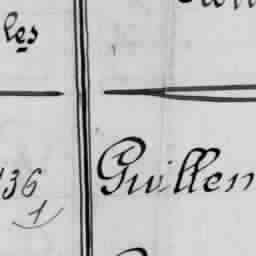 les
136
1
Guillen